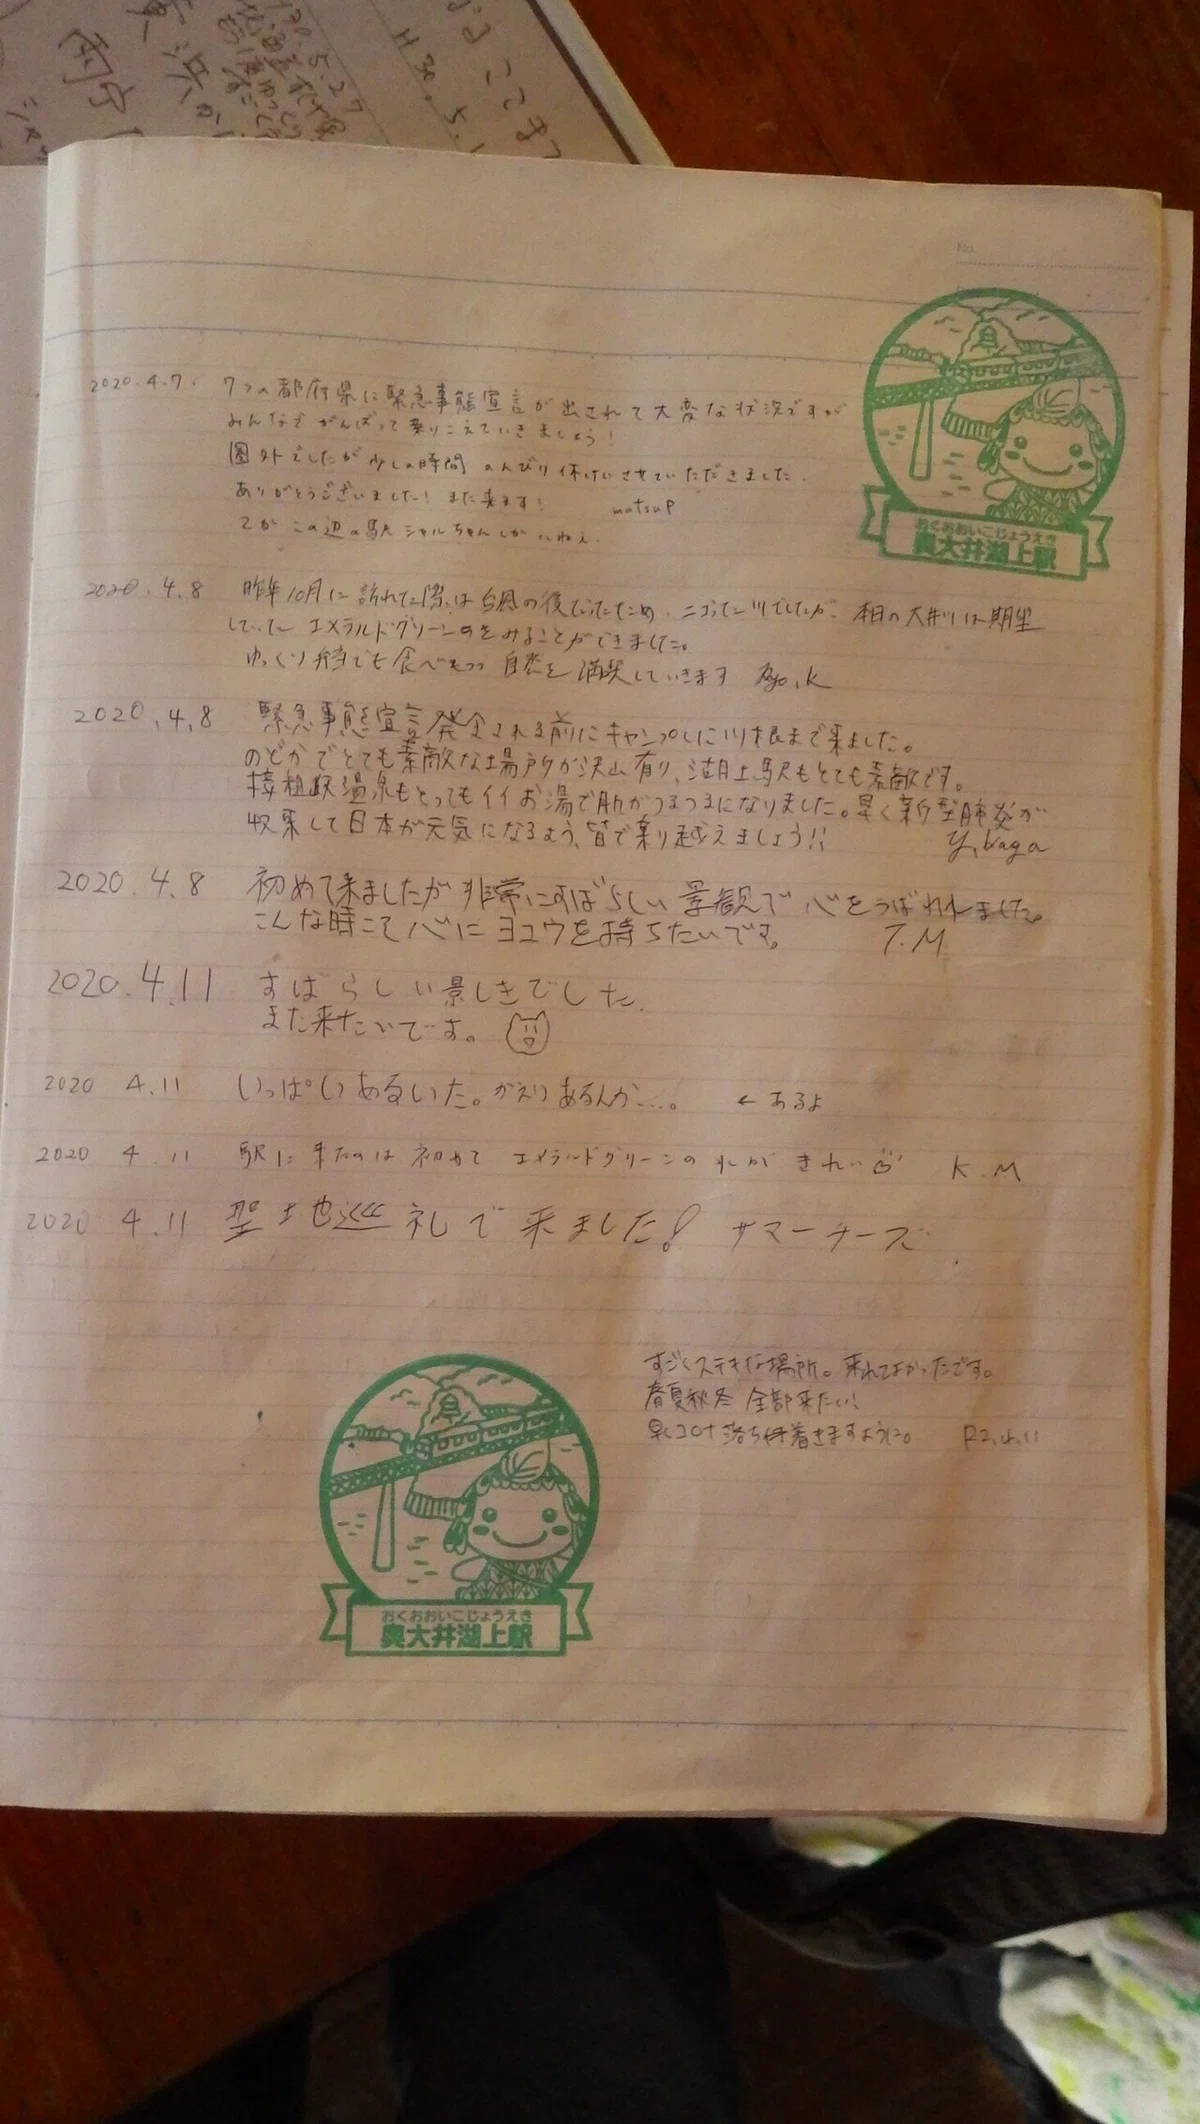 H30.5.1
H30.5.27
No.
2020.4.7. 7つの都府県に緊急事態宣言が出されて大変な状況ですが
みんなで がんばって乗りこえていきましょう!
圏外でしたが少しの時間 のんびり休けいさせていただきました.
ありがとうございました! また来ます! matsuP
てか この辺の駅 シャルちゃんしか いねえ.
おくおおいこじょうえき
奥大井湖上駅
2020.4.8 昨年10月に訪れた際は台風の後だったため、ニゴった川でしたが、本日の大井川は期望
していた エメラルドグリーンのをみることができました。
ゆっくり弁当でも食べつつ 自然を満喫していきます Ryo.k
2020.4.8 緊急事態宣言発令される前にキャンプしに川根まで来ました。
のどかでとても素敵な場所が沢山有り、湖上駅もとても素敵です。
接岨峡温泉もとってもイイお湯で肌がつるつるになりました。早く新型肺炎が
収束して日本が元気になるよう、皆で乗り越えましょう!!
2020.4.8 初めて来ましたが 非常にすばらしい景観で 心をうばわれました。
こんな時こそ 心に ヨユウを持ちたいです。 T.M
2020.4.11 すばらしい景しきでした.
また来たいです。
2020 4.11 いっぱいあるいた。かえりあるんか…。 ←あるよ
2020 4.11 駅に来たのは初めて エメラルドグリーンの水がきれい K.M
2020 4.11 聖地巡礼で来ました! サマーチーズ
すごくステキな場所。来れてよかったです。
春夏秋冬 全部来たい!
早くコロナ落ち着きますように。 R2.4.11
おくおおいこじょうえき
奥大井湖上駅